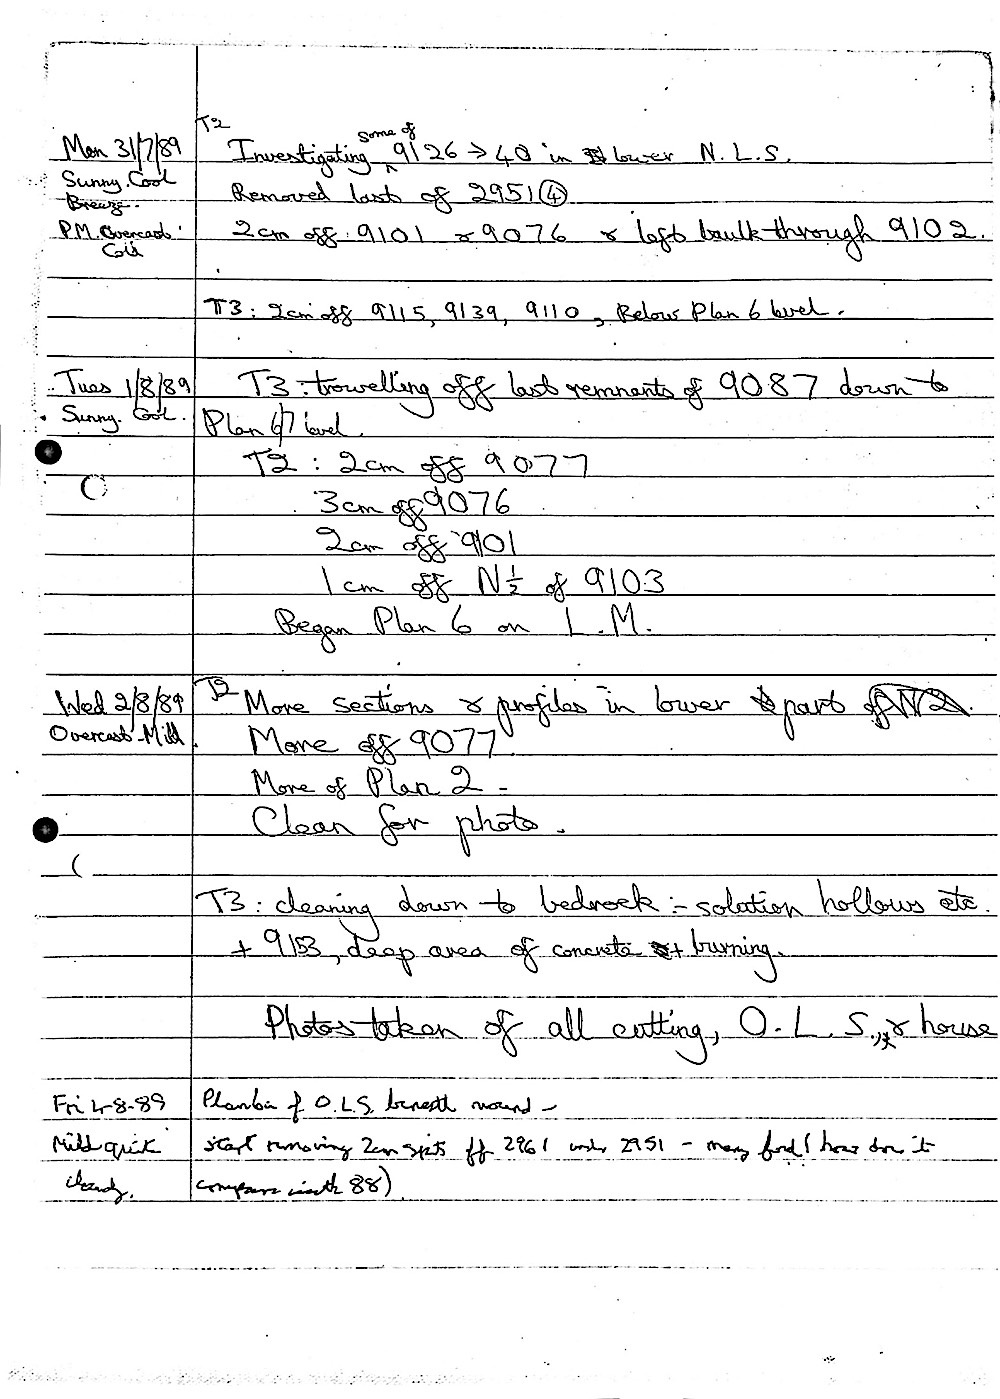 T2
Mon 31/7/89 Investigating some of 9126 → 40 in lower N.L.S.
Sunny. Cool Removed last of 2951 ④
Breeze.
P.M. Overcast. 2cm off 9101 & 9076 & left baulk through 9102.
Cold
T3: 2cm off 9115, 9139, 9110, Below Plan 6 level.
Tues 1/8/89 T3: trowelling off last remnants of 9087 down to
Sunny. Cool. Plan 6/7 level.
T2: 2cm off 9077
3cm off 9076
2cm off 9101
1cm off N½ of 9103
Began Plan 6 on L.M.
Wed 2/8/89 T2 More sections & profiles in lower part of
Overcast-Mild. More off 9077
More of Plan 2 -
Clean for photo.
T3: cleaning down to bedrock:- solution hollows etc.
+ 9153, deep area of concrete + burning.
Photos taken of all cutting, O.L.S., & house
Fri 4-8-89 of O.L.S. beneath mound -
Mild quick start removing 2cm spits off 2961 under 2951 - many
cloudy. compare with 88)